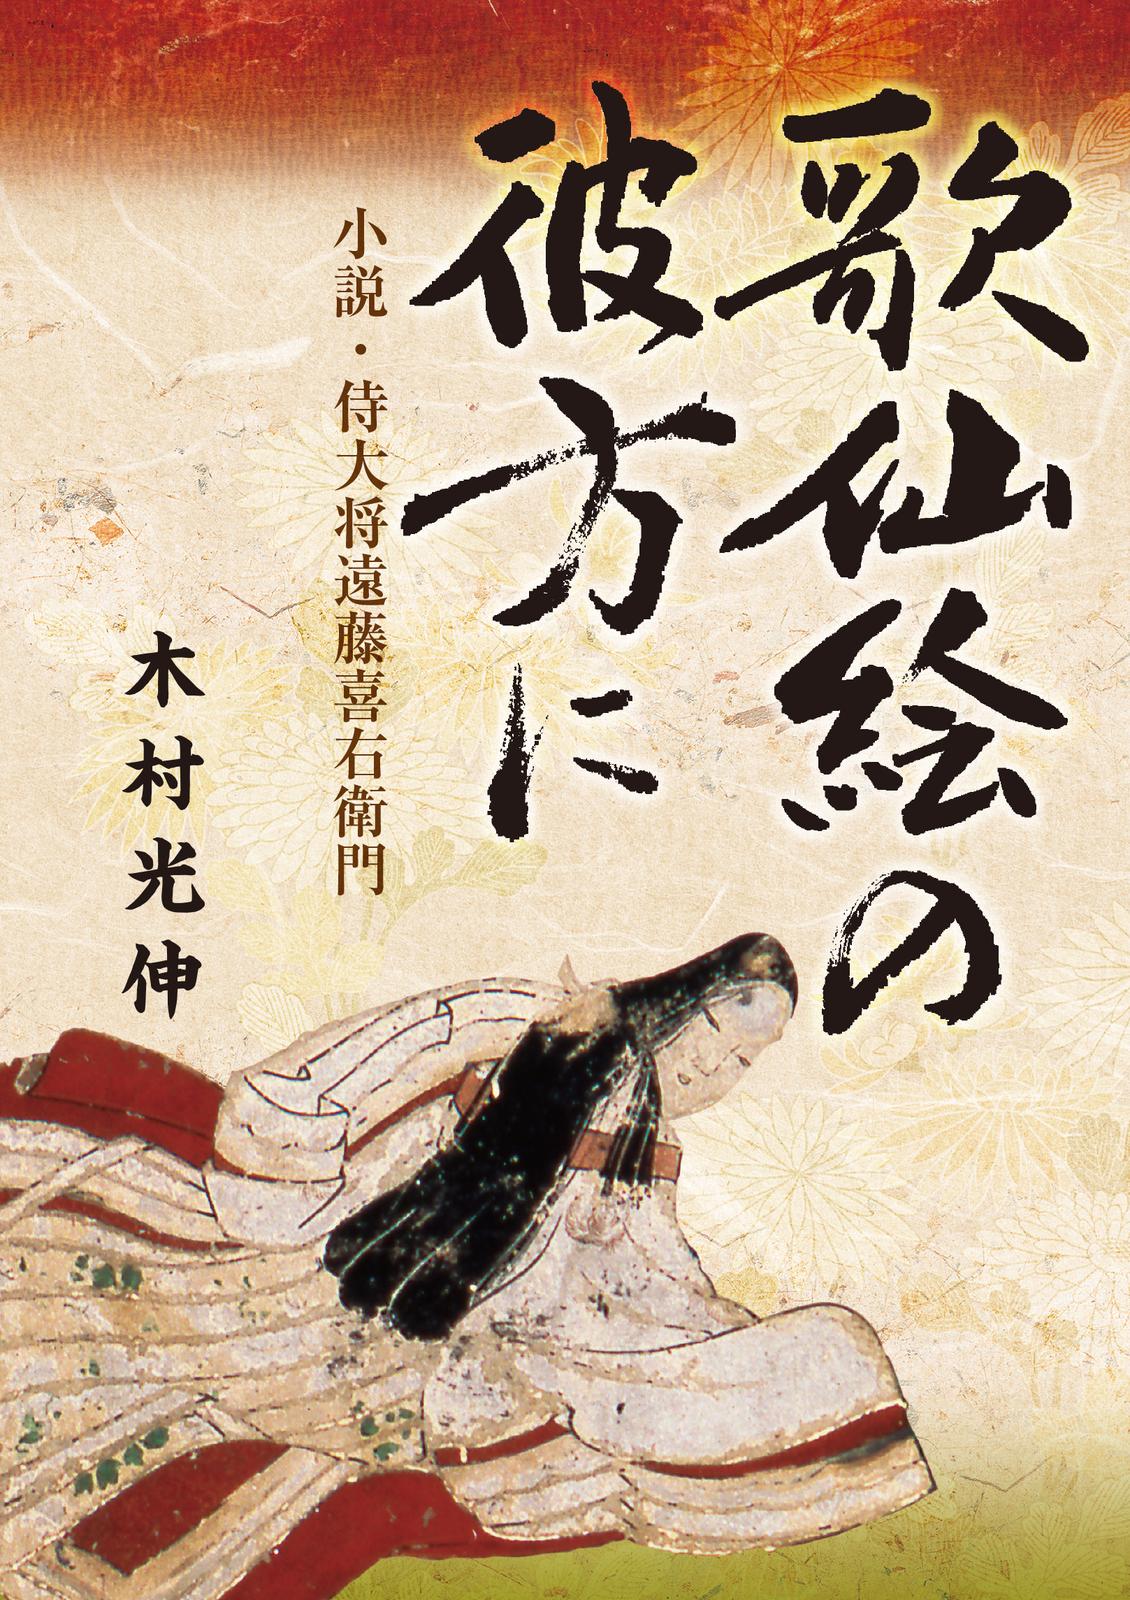 歌仙絵の
彼方に
小説・侍大将遠藤喜右衛門
木村光伸